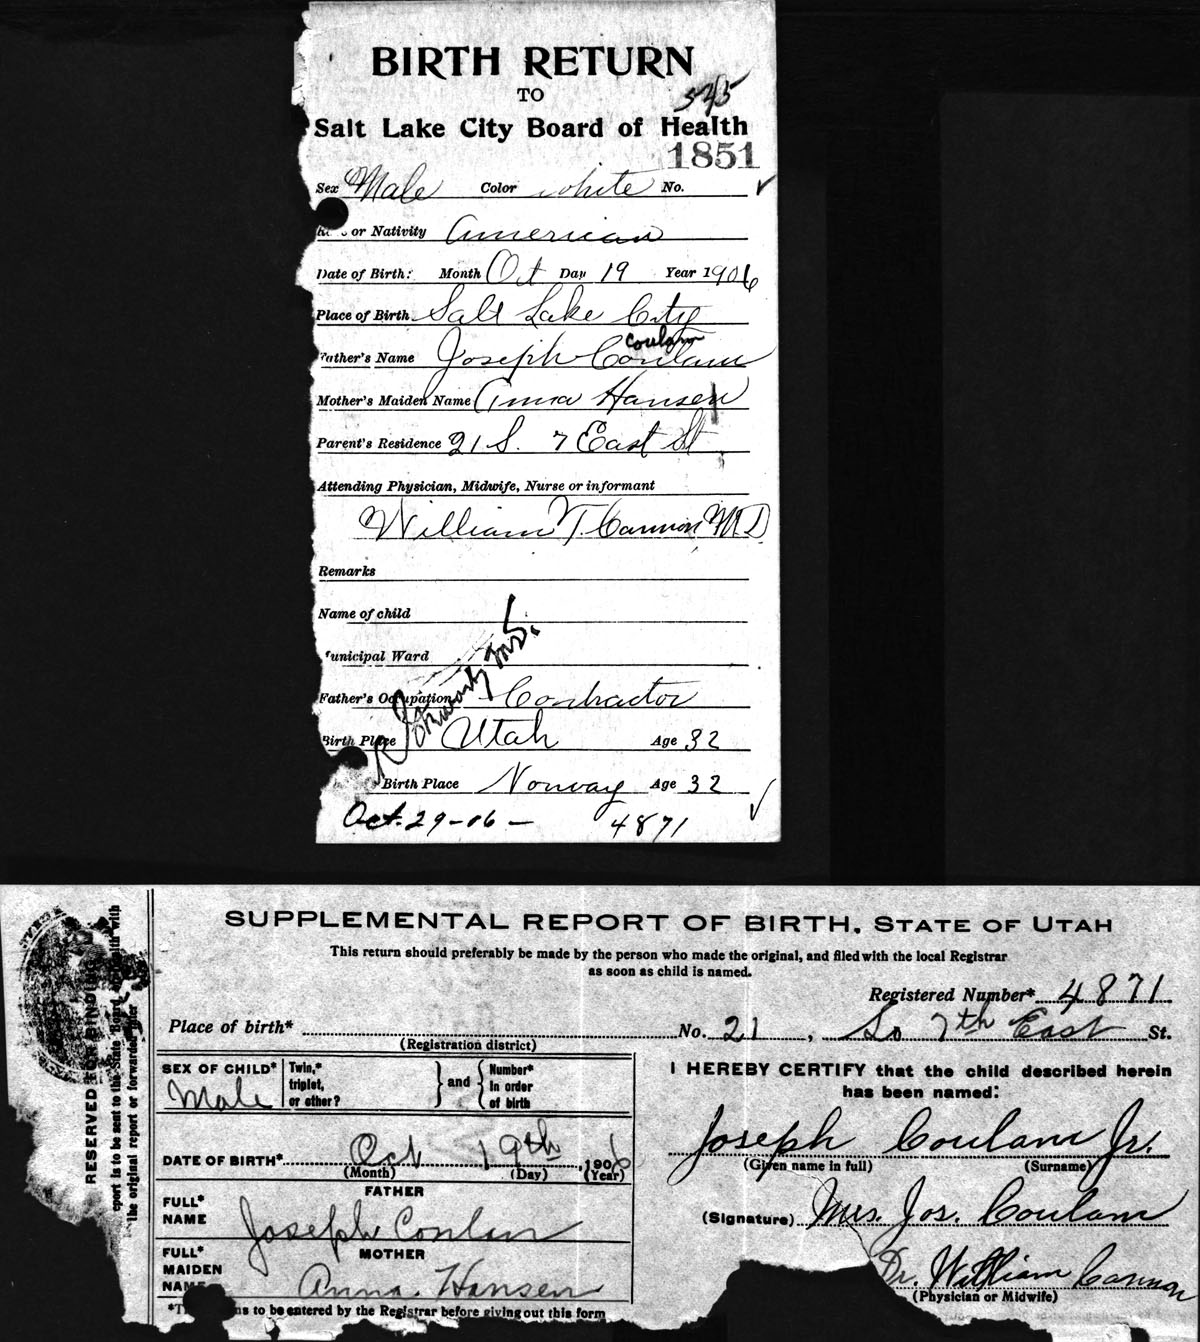 BIRTH RETURN
TO
545
Salt Lake City Board of Health
1851
Sex Male Color white No.
or Nativity American
Date of Birth: Month Oct Day 19 Year 1906
Place of Birth Salt Lake City
Coulam
Father's Name Joseph Coulam
Mother's Maiden Name Anna Hansen
Parent's Residence 21 S. 7 East St
Attending Physician, Midwife, Nurse or informant
William T Cannon M D
Remarks
Name of child
Municipal Ward
Father's Occupation Contractor
Birth Place Utah Age 32
Birth Place Norway Age 32
Oct. 29-06- 4871
SUPPLEMENTAL REPORT OF BIRTH, STATE OF UTAH
This return should preferably be made by the person who made the original, and filed with the local Registrar
as soon as child is named.
Registered Number* 4871
Place of birth* No. 21, So 7th East St.
(Registration district)
SEX OF CHILD* Male Twin,* triplet, or other? and Number* in order of birth
DATE OF BIRTH* Oct 19th 1906
(Month) (Day) (Year)
FATHER
FULL* NAME Joseph Conlan
MOTHER
FULL* MAIDEN NAME Anna. Hansen
ns to be entered by the Registrar before giving out this form
I HEREBY CERTIFY that the child described herein
has been named:
Joseph Coulam Jr.
(Given name in full) (Surname)
(Signature) Mrs. Jos. Coulam
Dr. William Cannon
(Physician or Midwife)
RESERVED FOR BINDING
eport is to be sent to the State Board of Health with
the original report or forwarded after